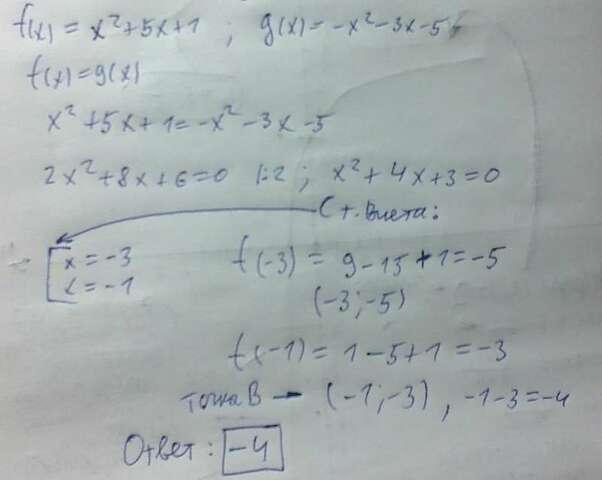 f(x) = x²+5x+1 ; g(x)=-x²-3x-5
f(x)=g(x)
x²+5x+1=-x²-3x-5
2x²+8x+6=0 |:2 ; x²+4x+3=0
т. Виета:
[x=-3
x=-1
f(-3) = 9-15+1=-5
(-3;-5)
f(x-1) = 1-5+1=-3
точка B - (-1;-3), -1-3=-4
Ответ: -4